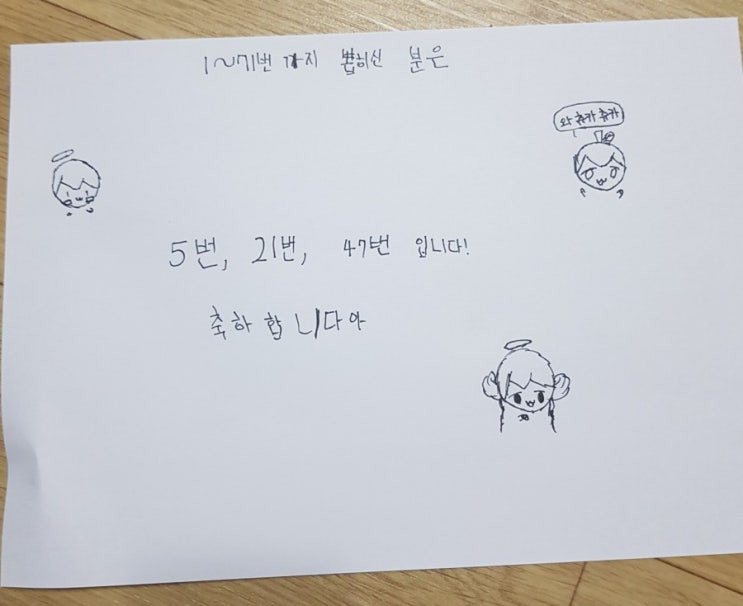 1~71번 까지 뽑히신 분은
와 츄카 츄카
5번, 21번, 47번 입니다!
축하 합니다아